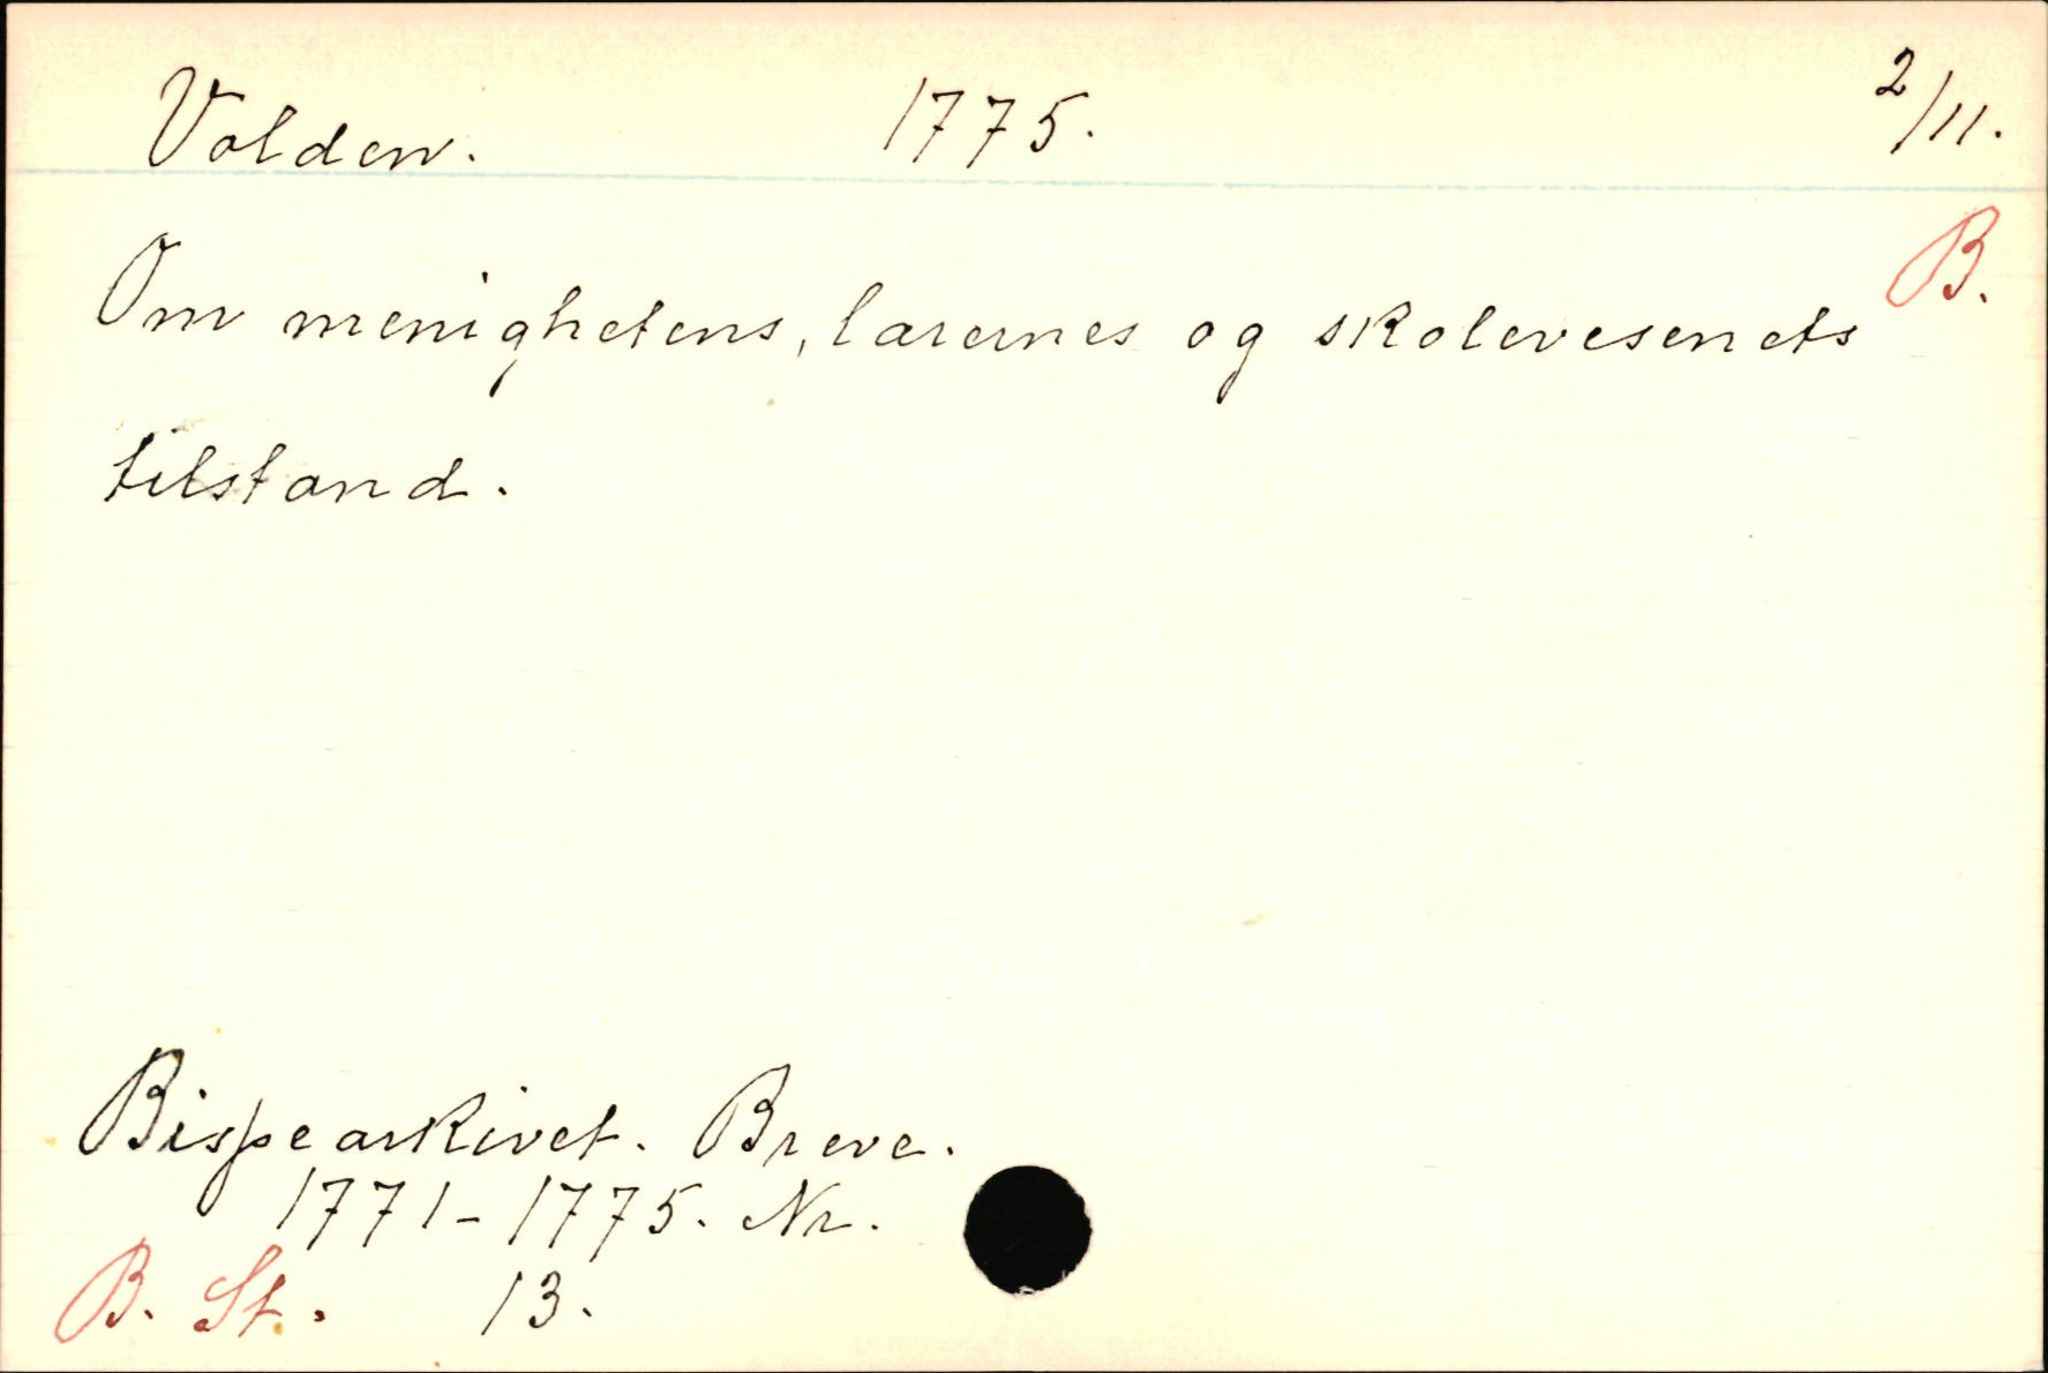 Volden. 1775. 2/11.
B.
Om menighetens, lærernes og skolevesenets
tilstand.
Bispearkivet. Breve.
1771-1775. Nr.
B. St. 13.